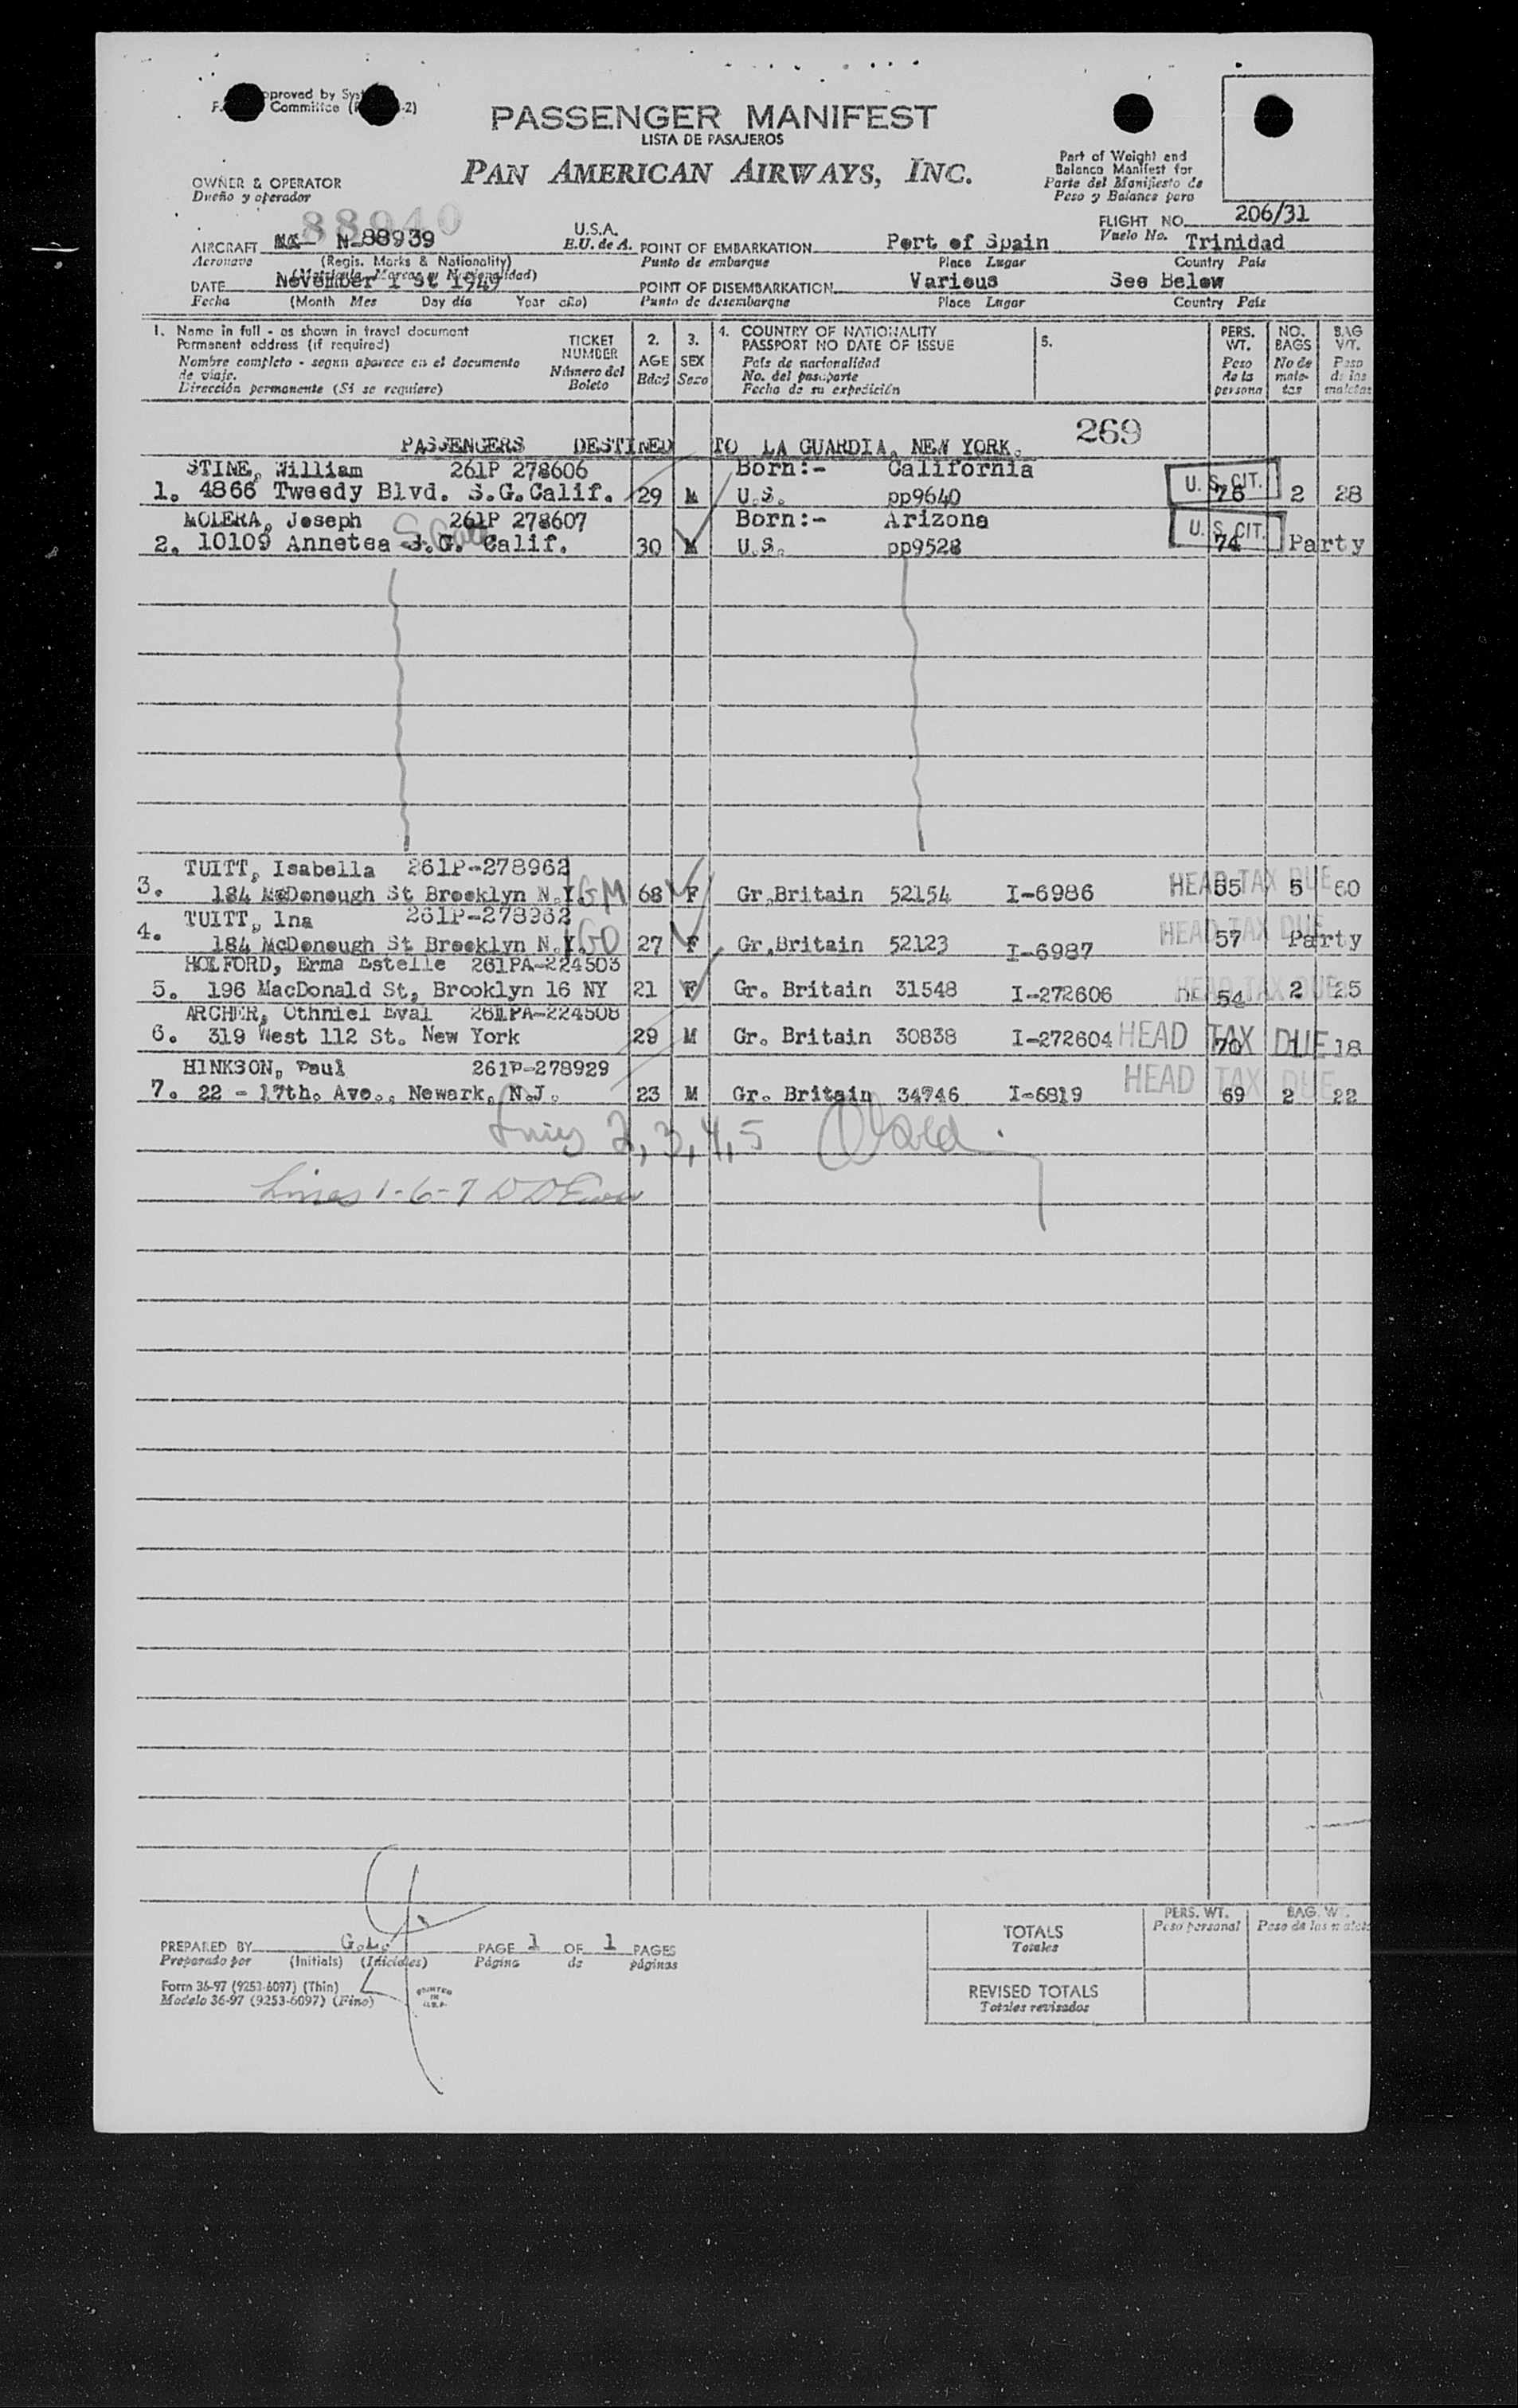 Approved by Sys
Committee ( -2)
PASSENGER MANIFEST
LISTA DE PASAJEROS
PAN AMERICAN AIRWAYS, INC.
Part of Weight and
Balance Manifest for
Parte del Manifiesto de
Peso y Balance para
OWNER & OPERATOR
Dueño y operador
88940
FLIGHT NO. 206/31
Vuelo No.
AIRCRAFT N-88939 U.S.A.
Aeronave (Regis. Marks & Nationality) E.U. de A.
(Matricula, Marcas y Nacionalidad)
POINT OF EMBARKATION Port of Spain Trinidad
Punto de embarque Place Lugar Country País
DATE November 1 st 1949
Fecha (Month Mes Day día Year año)
POINT OF DISEMBARKATION Various See Below
Punto de desembarque Place Lugar Country País
1. Name in full - as shown in travel document
Permanent address (if required)
Nombre completo - segun aparece en el documento
de viaje.
Dirección permanente (Si se requiere)
TICKET
NUMBER
Número del
Boleto
2.
AGE
Edad
3.
SEX
Sexo
4. COUNTRY OF NATIONALITY
PASSPORT NO DATE OF ISSUE
País de nacionalidad
No. del pasaporte
Fecha de su expedición
5.
PERS.
WT.
Peso
de la
persona
NO.
BAGS
No de
male-
tas
BAG
WT.
Peso
de las
maletas
269
PASSENGERS DESTINED TO LA GUARDIA, NEW YORK.
STINE, William 261P 278606 Born:- California
1. 4866 Tweedy Blvd. S.G.Calif. 29 M U.S. pp9640 U. S. CIT. 76 2 28
MOLERA, Joseph 261P 278607 Born:- Arizona
2. 10109 Annetea S.G. Calif. 30 M U.S. pp9528 U. S. CIT. 74 Party
S. Gate
TUITT, Isabella 261P-278962
3. 184 McDonough St Brooklyn N.Y. GM 68 F Gr.Britain 52154 I-6986 HEAD TAX DUE 55 5 60
TUITT, Ina 261P-278962
4. 184 McDonough St Brooklyn N.Y. GO 27 F Gr.Britain 52123 I-6987 HEAD TAX DUE 57 Party
HOLFORD, Erma Estelle 261PA-224503
5. 196 MacDonald St, Brooklyn 16 NY 21 F Gr. Britain 31548 I-272606 HEAD TAX DUE 54 2 25
ARCHER, Othniel Eval 261PA-224508
6. 319 West 112 St. New York 29 M Gr. Britain 30838 I-272604 HEAD TAX DUE 70 1 18
HINKSON, Paul 261P-278929
7. 22 - 17th. Ave., Newark, N.J. 23 M Gr. Britain 34746 I-6819 HEAD TAX DUE 69 2 22
Lines 2, 3, 4, 5
Lines 1-6-7
PREPARED BY G.L. PAGE 1 OF 1 PAGES
Preparado por (Initials) (Iniciales) Página de páginas
Form 36-97 (9253-6097) (Thin)
Modelo 36-97 (9253-6097) (Fino)
PRINTED
IN
U.S.A.
PERS. WT.
Peso personal
BAG. WT.
Peso de las maletas
TOTALS
Totales
REVISED TOTALS
Totales revisados